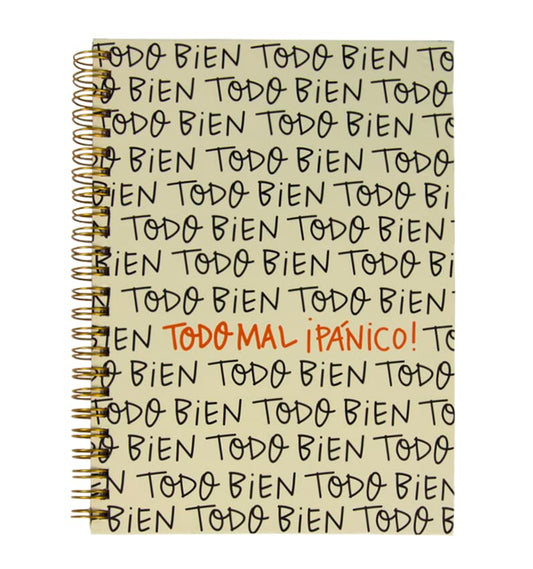 TODO BiEN TODO BiEN TO
BiEN TODO BiEN TODO
TODO BiEN TODO BiEN TO
BiEN TODO BiEN TODO
BiEN TODO BiEN TODO Bi
TODO BiEN TODO BiEN
BiEN TODO BiEN TODO Bi
TODO BiEN TODO BiEN
BiEN TODO MAL ¡PÁNICO! TO
BiEN TODO BiEN TODO
TODO BiEN TODO BiEN TO
BiEN TODO BiEN TODO
N TODO BiEN TODO BiEN
BiEN TODO BiEN TODO Bi